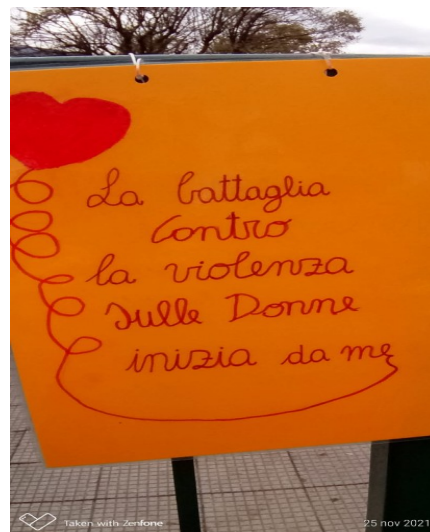 La battaglia
contro
la violenza
sulle Donne
inizia da me
Taken with Zenfone
25 nov 2021